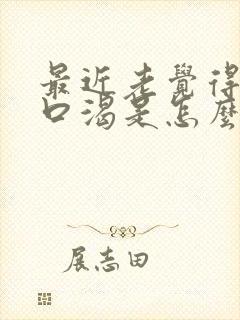 最近老覺得
口渴是怎麼
展志田